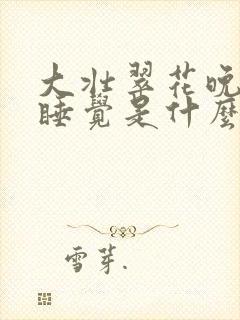 大壯翠花晚
睡覺是什麼
雪芽.